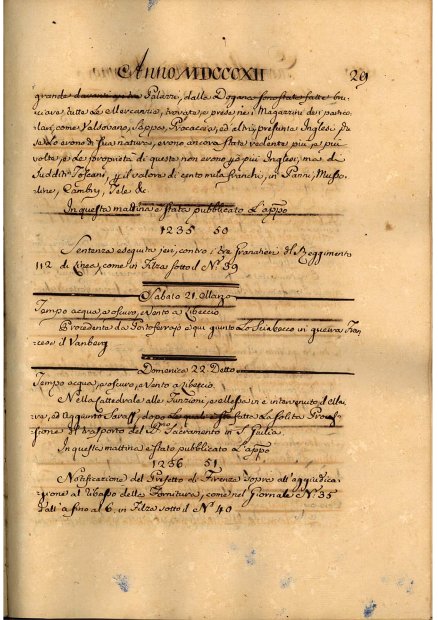 Anno MDCCCXII 29
grande davanti Palazzi, dalla Dogana sono state fatte bru
ciare tutte Le Mercanzie, trovate, e prese nei Magazzini dei partico
lari, come Valsovano, Sappa, Procaccia, ed altri, presunta Inglesi, Se
Se Lo erono di sua natura, erono ancora state vedente più, e più
volte, e Le proprietà di queste non erono già più Inglesi, ma di
Sudditi Toscani, p il valore di cento mila franchi, in Panni, Musso
line, Cambrj, Tele &c.
In questa mattina è stata pubblicato L'appo
1235 50
Sentenza eseguita jeri, contro i tre Granatieri del Reggimento
112 di Linea, come in Filza sotto d N.º 39
Sabato 21. Marzo
Tempo acqua, e oscuro, e Vento a Libeccio
Procedente da Portoferrajo è qui giunto Lo Sciabecco in guerra Fran
cese d Vanberg
Domenica 22 Detto
Tempo acqua, e oscuro, e Vento a Libeccio.
Nella Cattedrale alle Funzioni, e alla in è intervenuto il Mai
re, ed Aggiunto dopo Le quali è stata fatta La Solita Proces
sione di trasporto del Sacramento in S. Giulia.
In questa mattina è stato pubblicato L'appo
1256 51
Notificazione del Prefetto di Firenze sopra all'aggiudica
zione al ribasso delle Fornitura, come nel Giornale N.º 35
Dall' a fino al 6, in Filza sotto d N.º 40